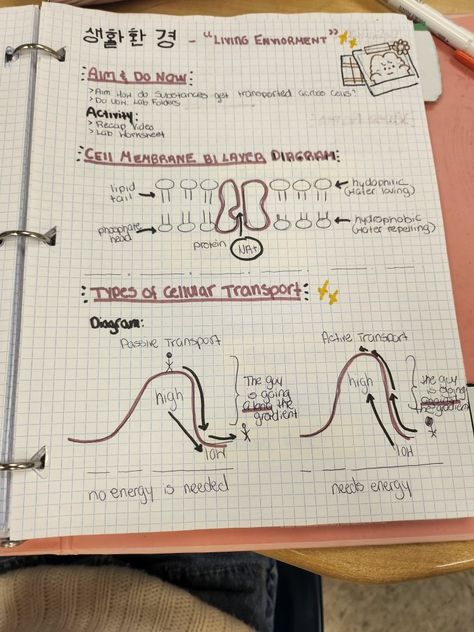 생활환경 - "Living Enviorment"
Aim & Do Now:
> Aim How do Substances get transported across cells?
> Do Now: Lab Folders
Activity:
> Recap Video
> Lab Worksheet
Cell Membrane Bilayer Diagram:
lipid tail
hydophilic (water loving)
phosphate head
hydrophobic (water repelling)
protein
NA+
Types of Cellular Transport
Diagram:
Passive Transport
high
low
The guy
is going
along the
gradient
no energy is needed
Active Transport
high
low
the guy
is going
against
the gradient
needs energy